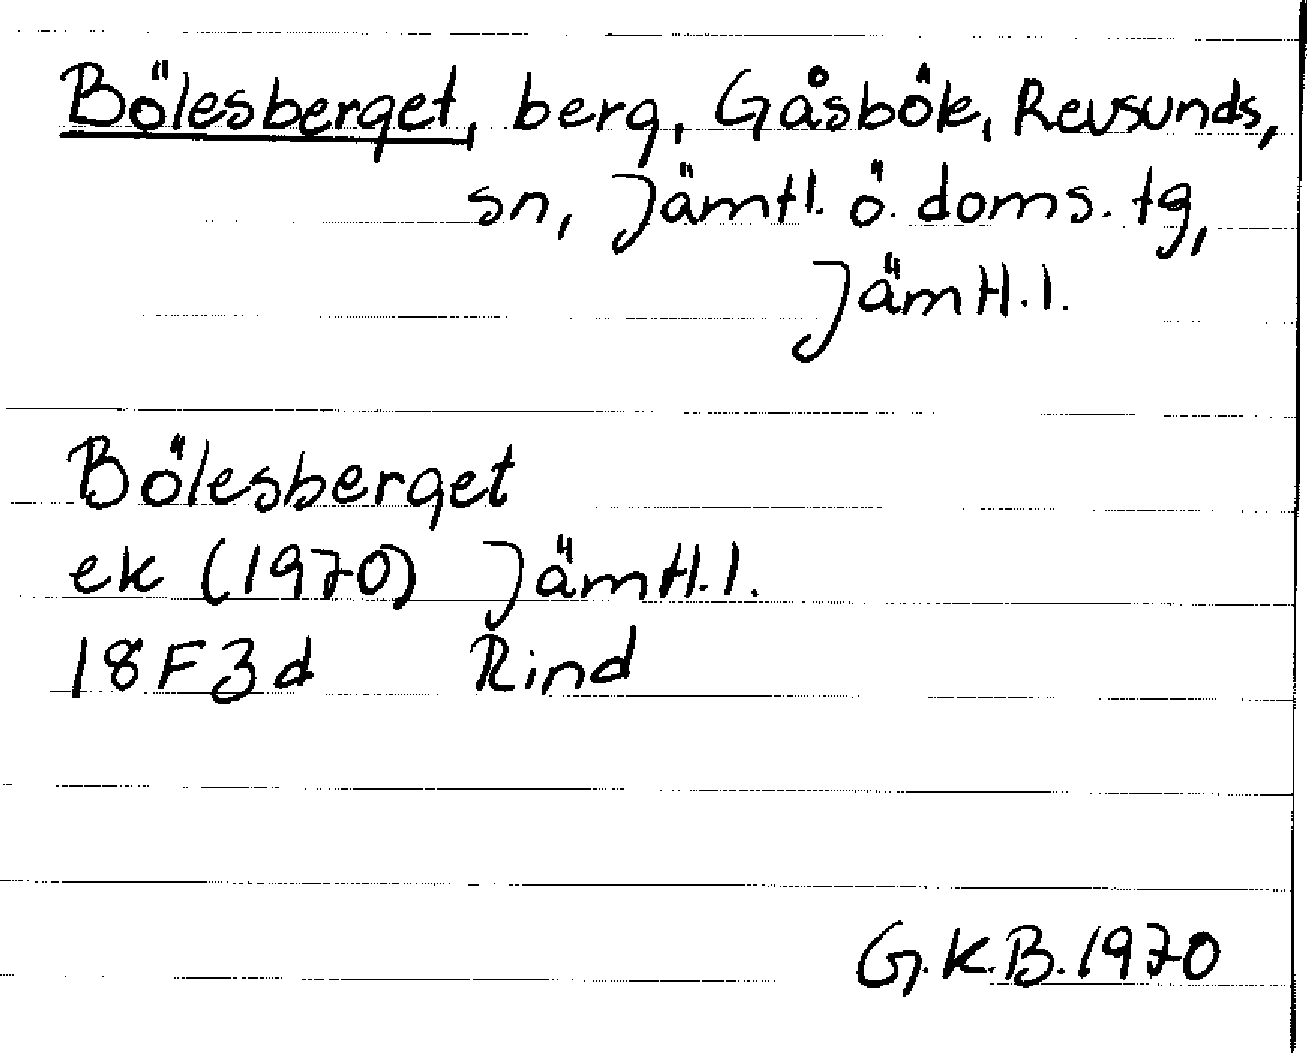 Bölesberget, berg, Gåsbök, Revsunds,
sn, Jämtl. ö. doms. tg,
Jämtl. l.
Bölesberget
ek (1970) Jämtl. l.
18F3d Rind
G.K.B. 1970